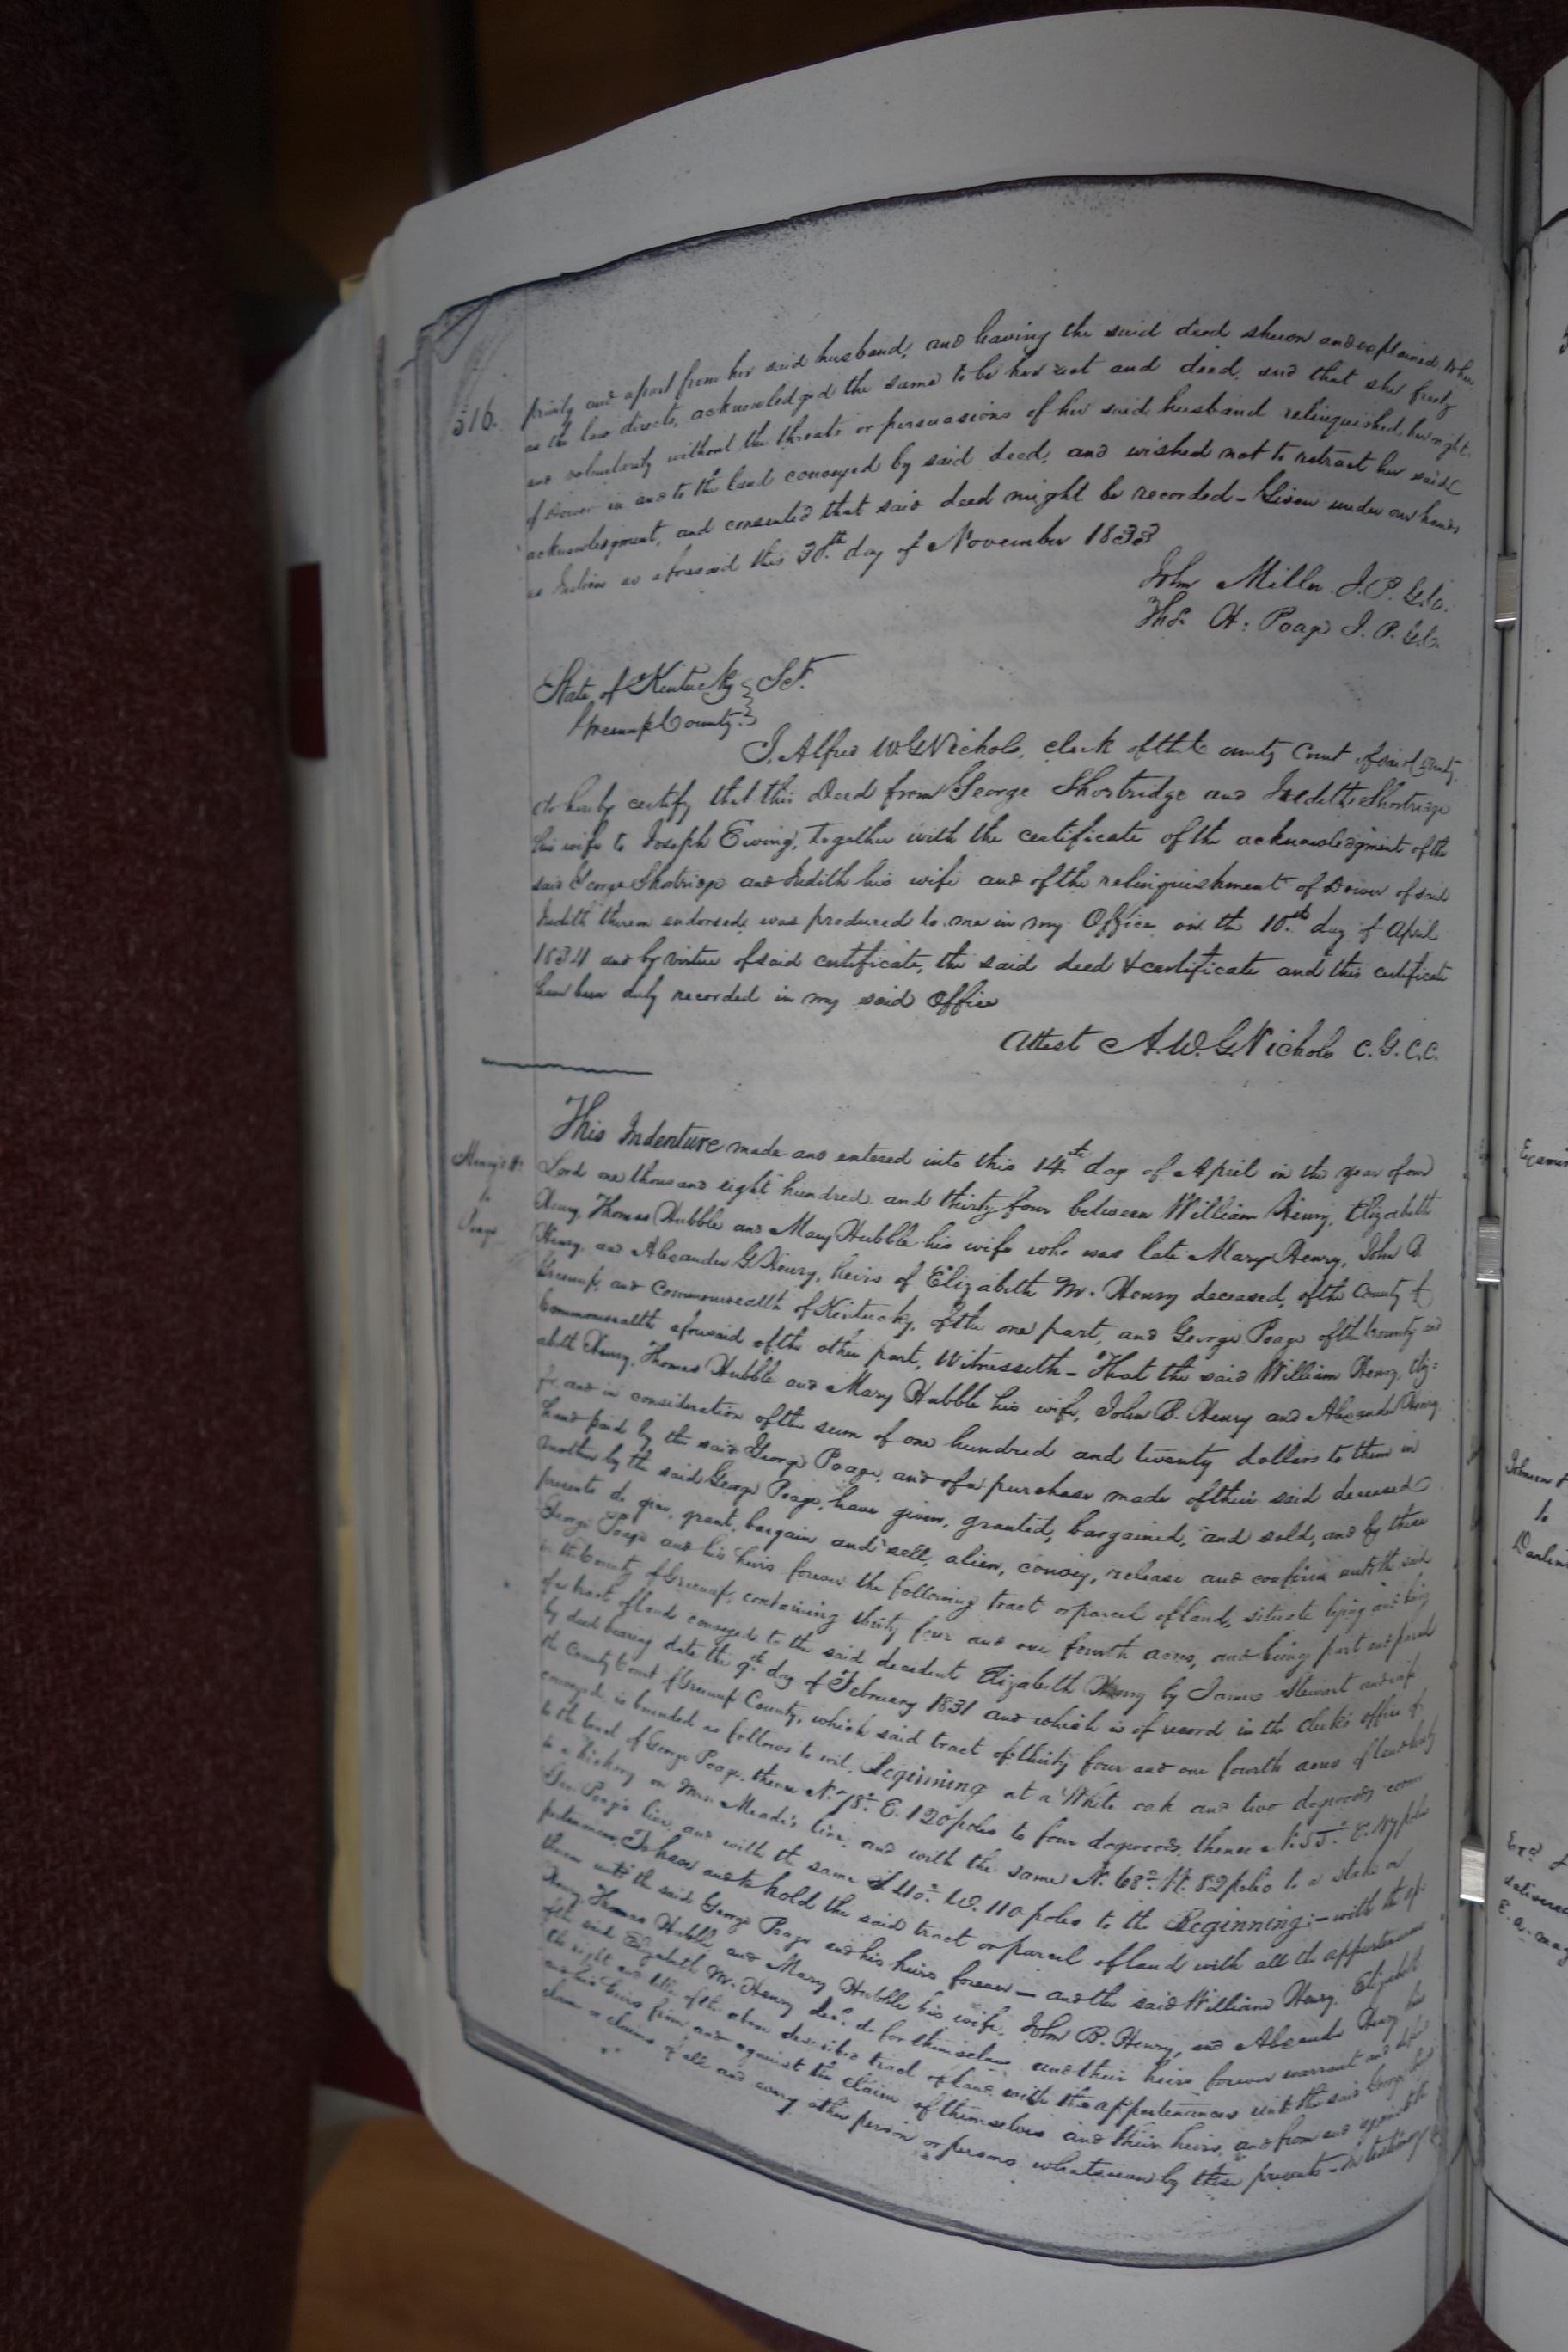 516.
privily and apart from her said husband, and having the said deed shewn and explained to her
as the law directs, acknowledged the same to be her act and deed, and that she freely
and voluntarily without the threats or persuasions of her said husband relinquished her right
of Dower in and to the land conveyed by said deed, and wished not to retract her said
acknowledgment, and consented that said deed might be recorded - Given under our hands
as Justices as aforesaid this 30th day of November 1833
John Miller J. P. G. C.
Ths. H. Poage J. P. G. C.
State of Kentucky } Sct.
Greenup County }
I, Alfred W. G Nichols, clerk of the county Court of said County,
do hereby certify that this Deed from George Shortridge and Judith Shortridge
his wife to Joseph Ewing, together with the certificate of the acknowledgment of the
said George Shortridge and Judith his wife and of the relinquishment of Dower of said
Judith thereon endorsed, was produced to me in my Office on the 10th day of April
1834 and by virtue of said certificate, the said deed & certificate and this certificate
have been duly recorded in my said Office
Attest A. W. G Nichols C. G. C. C.
This Indenture made and entered into this 14th day of April in the year of our
Henry's
to
Poage
Lord one thousand eight hundred and thirty four between William Henry, Elizabeth
Henry, Thomas Hubble and Mary Hubble his wife who was late Mary Henry, John B.
Henry, and Alexander G Henry, heirs of Elizabeth M. Henry deceased, of the County of
Greenup, and Commonwealth of Kentucky, of the one part, and George Poage of the County and
Commonwealth aforesaid of the other part, Witnesseth - That the said William Henry, Eliz=
abeth Henry, Thomas Hubble and Mary Hubble his wife, John B. Henry and Alexander Henry
for and in consideration of the sum of one hundred and twenty dollars to them in
hand paid by the said George Poage, and of a purchase made of their said deceased
mother by the said George Poage, have given, granted, bargained, and sold, and by these
presents do give, grant, bargain and sell, alien, convey, release and confirm unto the said
George Poage and his heirs forever the following tract or parcel of land, situate lying and being
in the County of Greenup, containing thirty four and one fourth acres, and being part and parcel
of a tract of land conveyed to the said decedent Elizabeth Henry by James Stewart and wife
by deed bearing date the 9th day of February 1831 and which is of record in the clerk's office of
the County Court of Greenup County, which said tract of thirty four and one fourth acres of land hereby
conveyed, is bounded as follows to wit, Beginning at a White oak and two dogwoods corner
to the tract of George Poage, thence N. 78° E. 120 poles to four dogwoods, thence N. 55° E. poles
to a hickory on Mrs. Meade's line, and with the same N. 68° W. 82 poles to a stake on
Geo. Poage's line, and with the same S 40° W. 110 poles to the Beginning; - with the ap-
purtenances, To have and to hold the said tract or parcel of land with all the appurtenances
thereon unto the said George Poage and his heirs forever - and the said William Henry, Elizabeth
Henry, Thomas Hubble and Mary Hubble his wife, John B. Henry, and Alexander Henry heirs
of the said Elizabeth M. Henry decd. do for themselves and their heirs forever warrant and defend
the right and title of the above described tract of land with the appurtenances unto the said George Poage
and his heirs from and against the claim of themselves and their heirs, and from and against the
claim or claims of all and every other person or persons whatsoever by these presents - In testimony